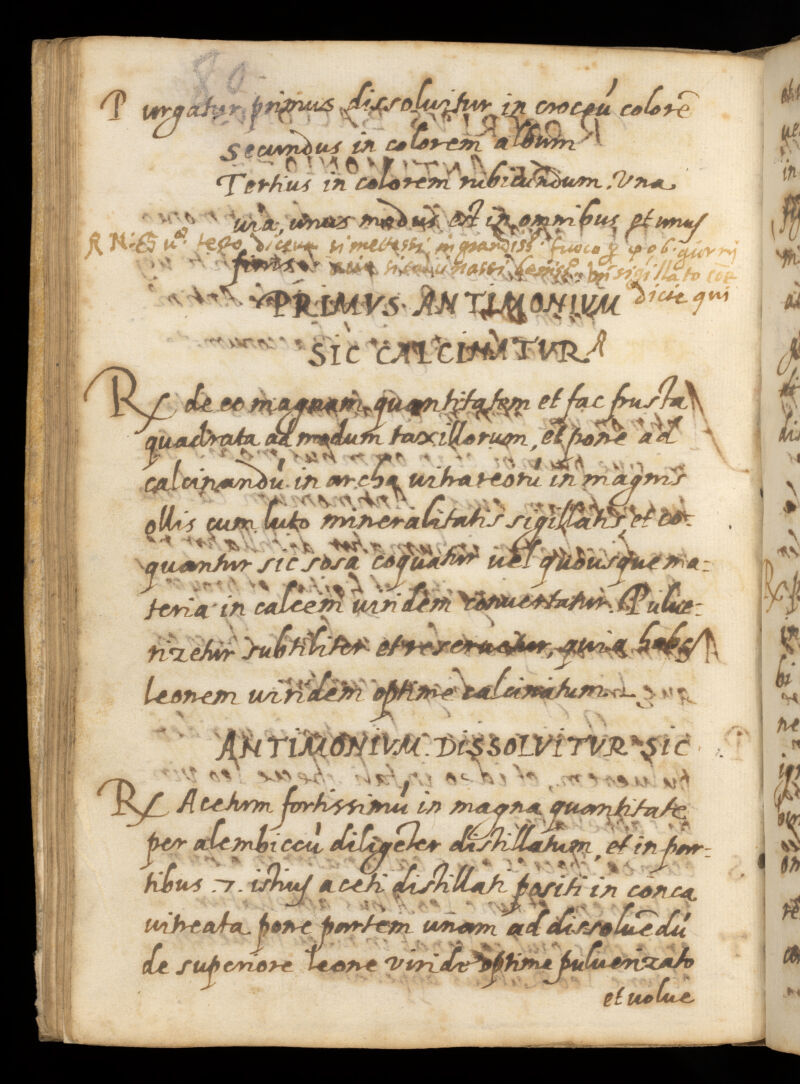 80
Purgatur primus dissoluitur in croceú colorē
Secundus in colorem album
Tertius in colorem rubicundum. Una
uia, unus modus est in omnibus et unus
finis
dicie qui
PRIMVS ANTIMONIVM
SIC CALCINATVR
R/ de eo magnam quantitatem et fac frusta
quadrata ad modum taxillorum, et pone ad
calcinandú in archa uitrareorú in magnis
ollis cum luto mineralitatis sigillatis, et co-
quantur sic sosa coquatur uel quousque ma=
teria in calcem uiridem conuertatur. Pulue-
rizetur subtiliter et reseruetur, quia habes
leonem uiridem optime calcinatum
ANTIMONIVM DISSOLVITVR SIC
R/ Acetum fortissimú in magna quantitate
per alembiccú diligēter distillatum, et in par-
tibus .7. istius aceti distillati positi in conca
uitreata pone partem unam ad dissoluēdú
de superiore leone viride optime puluerizato
et uolue